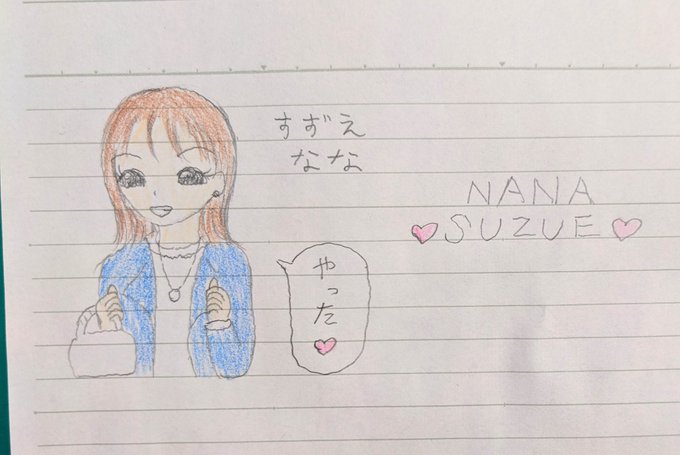 すずえ
なな
NANA
♥SUZUE♥
やった♥